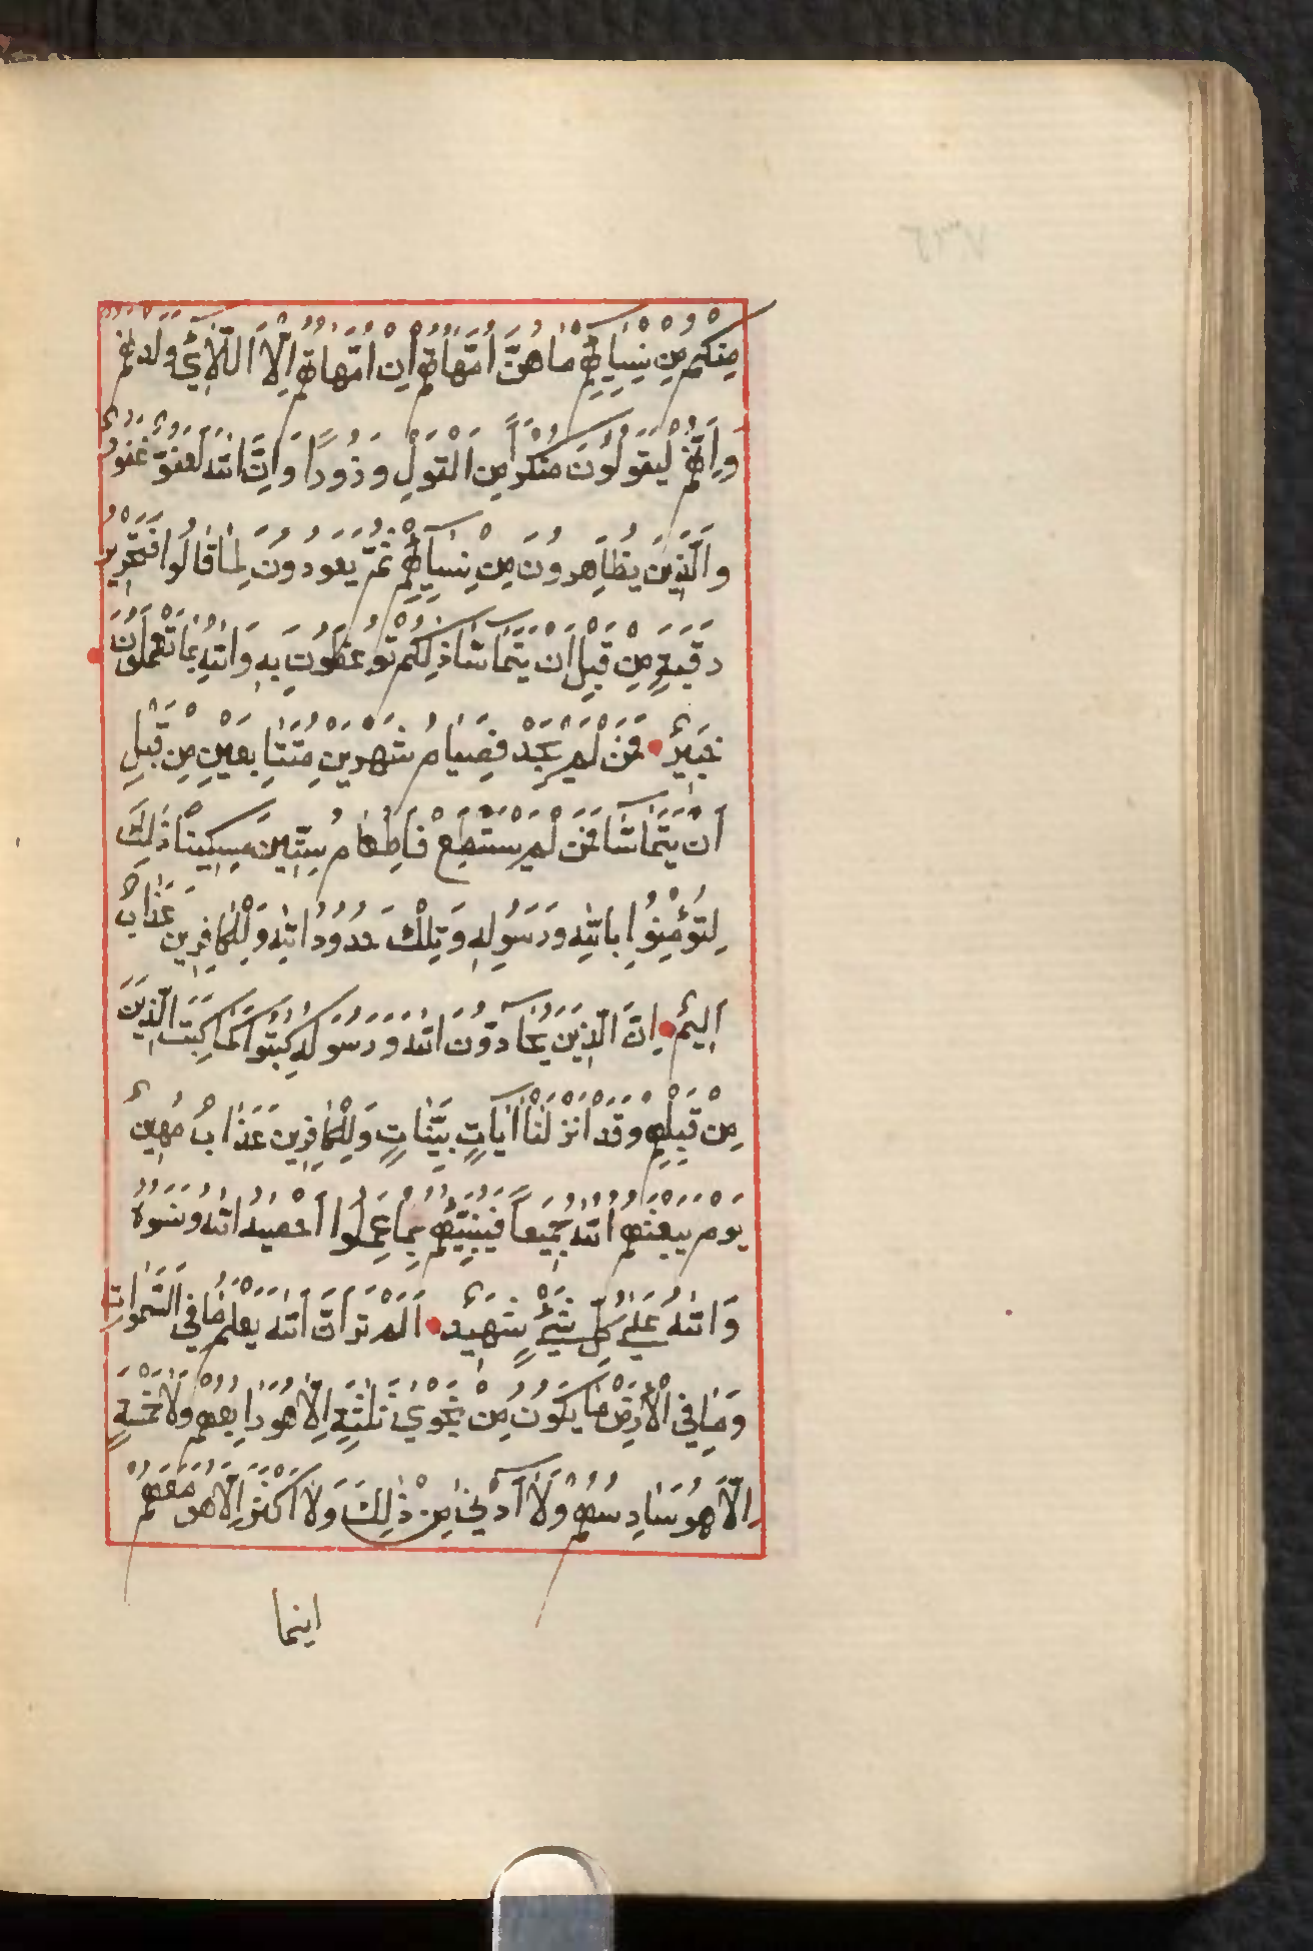 مِنْكُمْ مِنْ نِسَايِهِمْ مَا هُنَّ اُمَّهَاتِهِمْ اِنْ اُمَّهَاتُهُمْ اِلَّا اللَّائِي وَلَدْنَهُمْ
وَاِنَّهُمْ لَيَقُولُونَ مُنْكَراً مِنَ الْقَوْلِ وَزُوراً وَاِنَّ اللّٰهَ لَعَفُوٌّ غَفُورٌ
وَالَّذِينَ يُظَاهِرُونَ مِنْ نِسَايِهِمْ ثُمَّ يَعُودُونَ لِمَا قَالُوا فَتَحْرِيرُ
رَقَبَةٍ مِنْ قَبْلِ اَنْ يَتَمَاسَّا ذٰلِكُمْ تُوعَظُونَ بِهِ وَاللّٰهُ بِمَا تَعْمَلُونَ
خَبِيرٌ فَمَنْ لَمْ يَجِدْ فَصِيَامُ شَهْرَيْنِ مُتَتَابِعَيْنِ مِنْ قَبْلِ
اَنْ يَتَمَاسَّا فَمَنْ لَمْ يَسْتَطِعْ فَاِطْعَامُ سِتِّينَ مِسْكِيناً ذٰلِكَ
لِتُؤْمِنُوا بِاللّٰهِ وَرَسُولِهِ وَتِلْكَ حُدُودُ اللّٰهِ وَلِلْكَافِرِينَ عَذَابٌ
اَلِيمٌ اِنَّ الَّذِينَ يُحَادُّونَ اللّٰهَ وَرَسُولَهُ كُبِتُوا كَمَا كُبِتَ الَّذِينَ
مِنْ قَبْلِهِمْ وَقَدْ اَنْزَلْنَا اٰيَاتٍ بَيِّنَاتٍ وَلِلْكَافِرِينَ عَذَابٌ مُهِينٌ
يَوْمَ يَبْعَثُهُمُ اللّٰهُ جَمِيعاً فَيُنَبِّئُهُمْ بِمَا عَمِلُوا اَحْصٰيهُ اللّٰهُ وَنَسُوهُ
وَاللّٰهُ عَلٰى كُلِّ شَيْءٍ شَهِيدٌ اَلَمْ تَرَ اَنَّ اللّٰهَ يَعْلَمُ مَا فِي السَّمٰوَاتِ
وَمَا فِي الْاَرْضِ مَا يَكُونُ مِنْ نَجْوٰى ثَلٰثَةٍ اِلَّا هُوَ رَابِعُهُمْ وَلَا خَمْسَةٍ
اِلَّا هُوَ سَادِسُهُمْ وَلَا اَدْنٰى مِنْ ذٰلِكَ وَلَا اَكْثَرَ اِلَّا هُوَ مَعَهُمْ
اينما